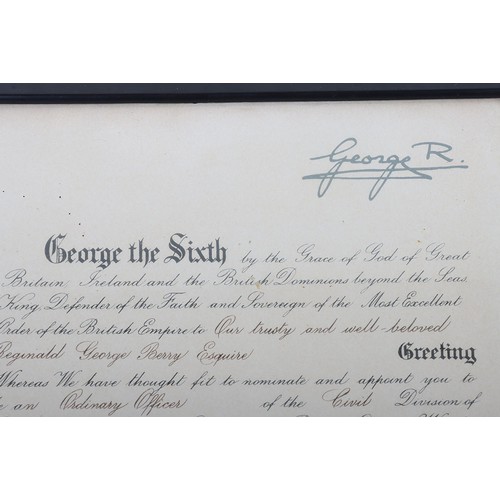 George R.
George the Sixth by the Grace of God of Great
Britain, Ireland and the British Dominions beyond the Seas
King, Defender of the Faith and Sovereign of the Most Excellent
Order of the British Empire to Our trusty and well-beloved
Reginald George Berry Esquire Greeting
Whereas We have thought fit to nominate and appoint you to
be an Ordinary Officer of the Civil Division of